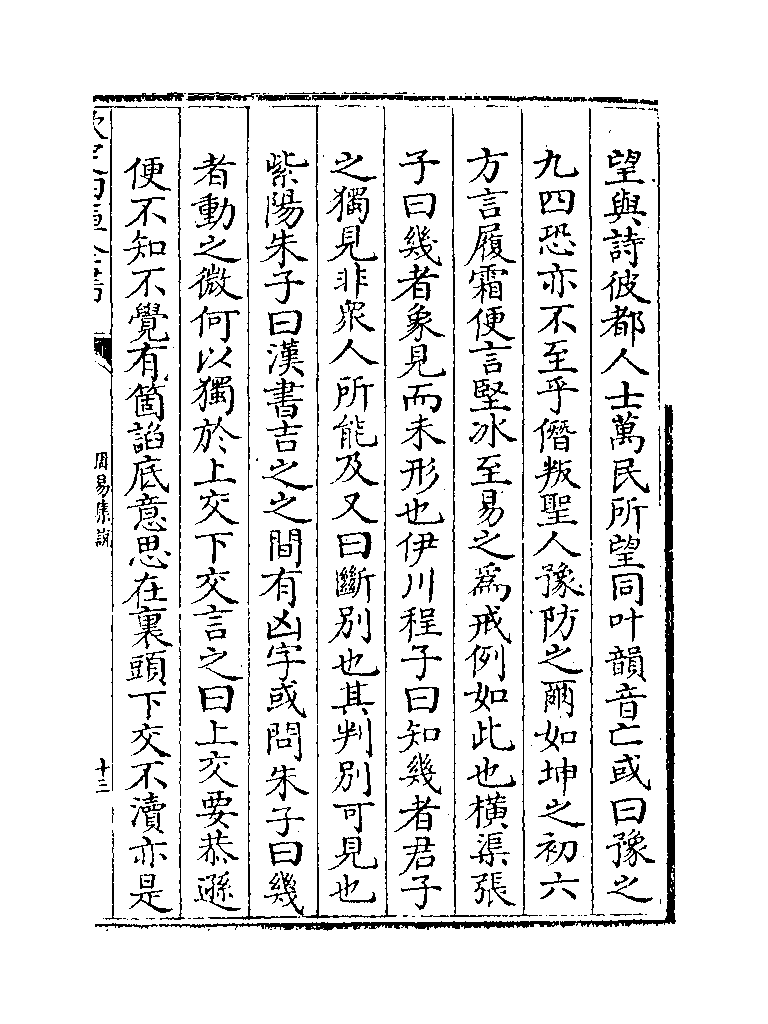 望與詩彼都人士萬民所望同叶韻音亡或曰豫之
九四恐亦不至乎僭叛聖人豫防之爾如坤之初六
方言履霜便言堅冰至易之為戒例如此也橫渠張
子曰幾者象見而未形也伊川程子曰知幾者君子
之獨見非衆人所能及又曰斷別也其判別可見也
紫陽朱子曰漢書吉之之間有凶字或問朱子曰幾
者動之微何以獨於上交下交言之曰上交要恭遜
便不知不覺有箇諂底意思在裏頭下交不瀆亦是
周易集說
十三